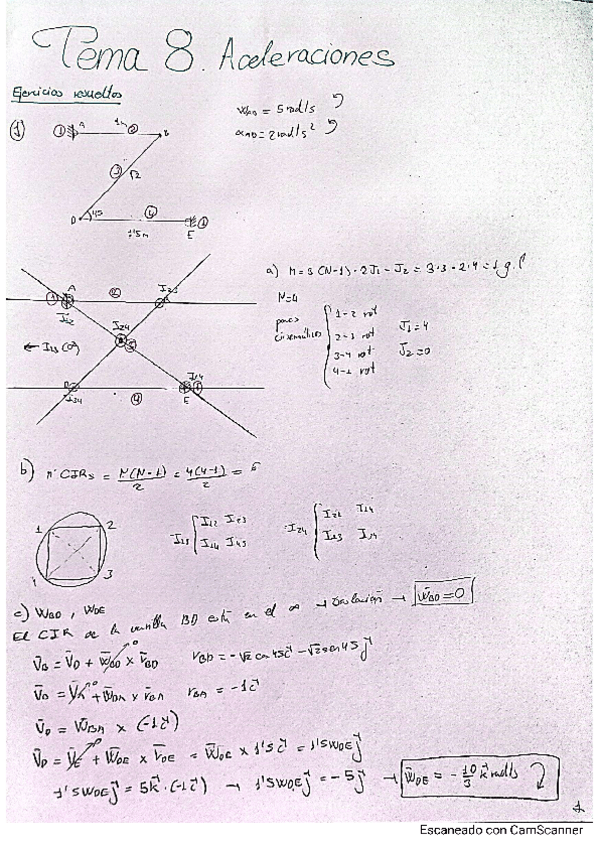 Tema 8. Aceleraciones
Ejercicios resueltos
1)
ω = 5 rad/s
α = 2 rad/s²
1 A 1m 2 B
3 √2
D 45 4 E 1
1'5m
1 A 2 I23
I12
I24
← I13 (∞) 3
D I34 4 I14 E 1
a) M = 3(N-1) - 2J1 - J2 = 3·3 - 2·4 = 1 g.l
N=4
pares cinemáticos
1-2 rot
2-3 rot
3-4 rot
4-1 rot
J1 = 4
J2 = 0
b) nº CIRs = N(N-1)/2 = 4(4-1)/2 = 6
1 2
4 3
I13 { I12 I23
I14 I43
I24 { I12 I14
I23 I34
c) WBD, WDE
El CIR de la varilla BD está en el ∞ → traslación → W̄BD = 0
V̄B = V̄D + W̄BD × r̄BD rBD = -√2 cos 45 i - √2 sen 45 j
V̄B = V̄A + W̄BA × r̄BA rBA = -1 i
V̄D = W̄BA × (-1i)
V̄D = V̄E + W̄DE × r̄DE = W̄DE × 1'5 i = 1'5 WDE j
1'5 WDE j = 5k · (-1i) → 1'5 WDE j = -5 j → W̄DE = -10/3 k rad/s
1
Escaneado con CamScanner